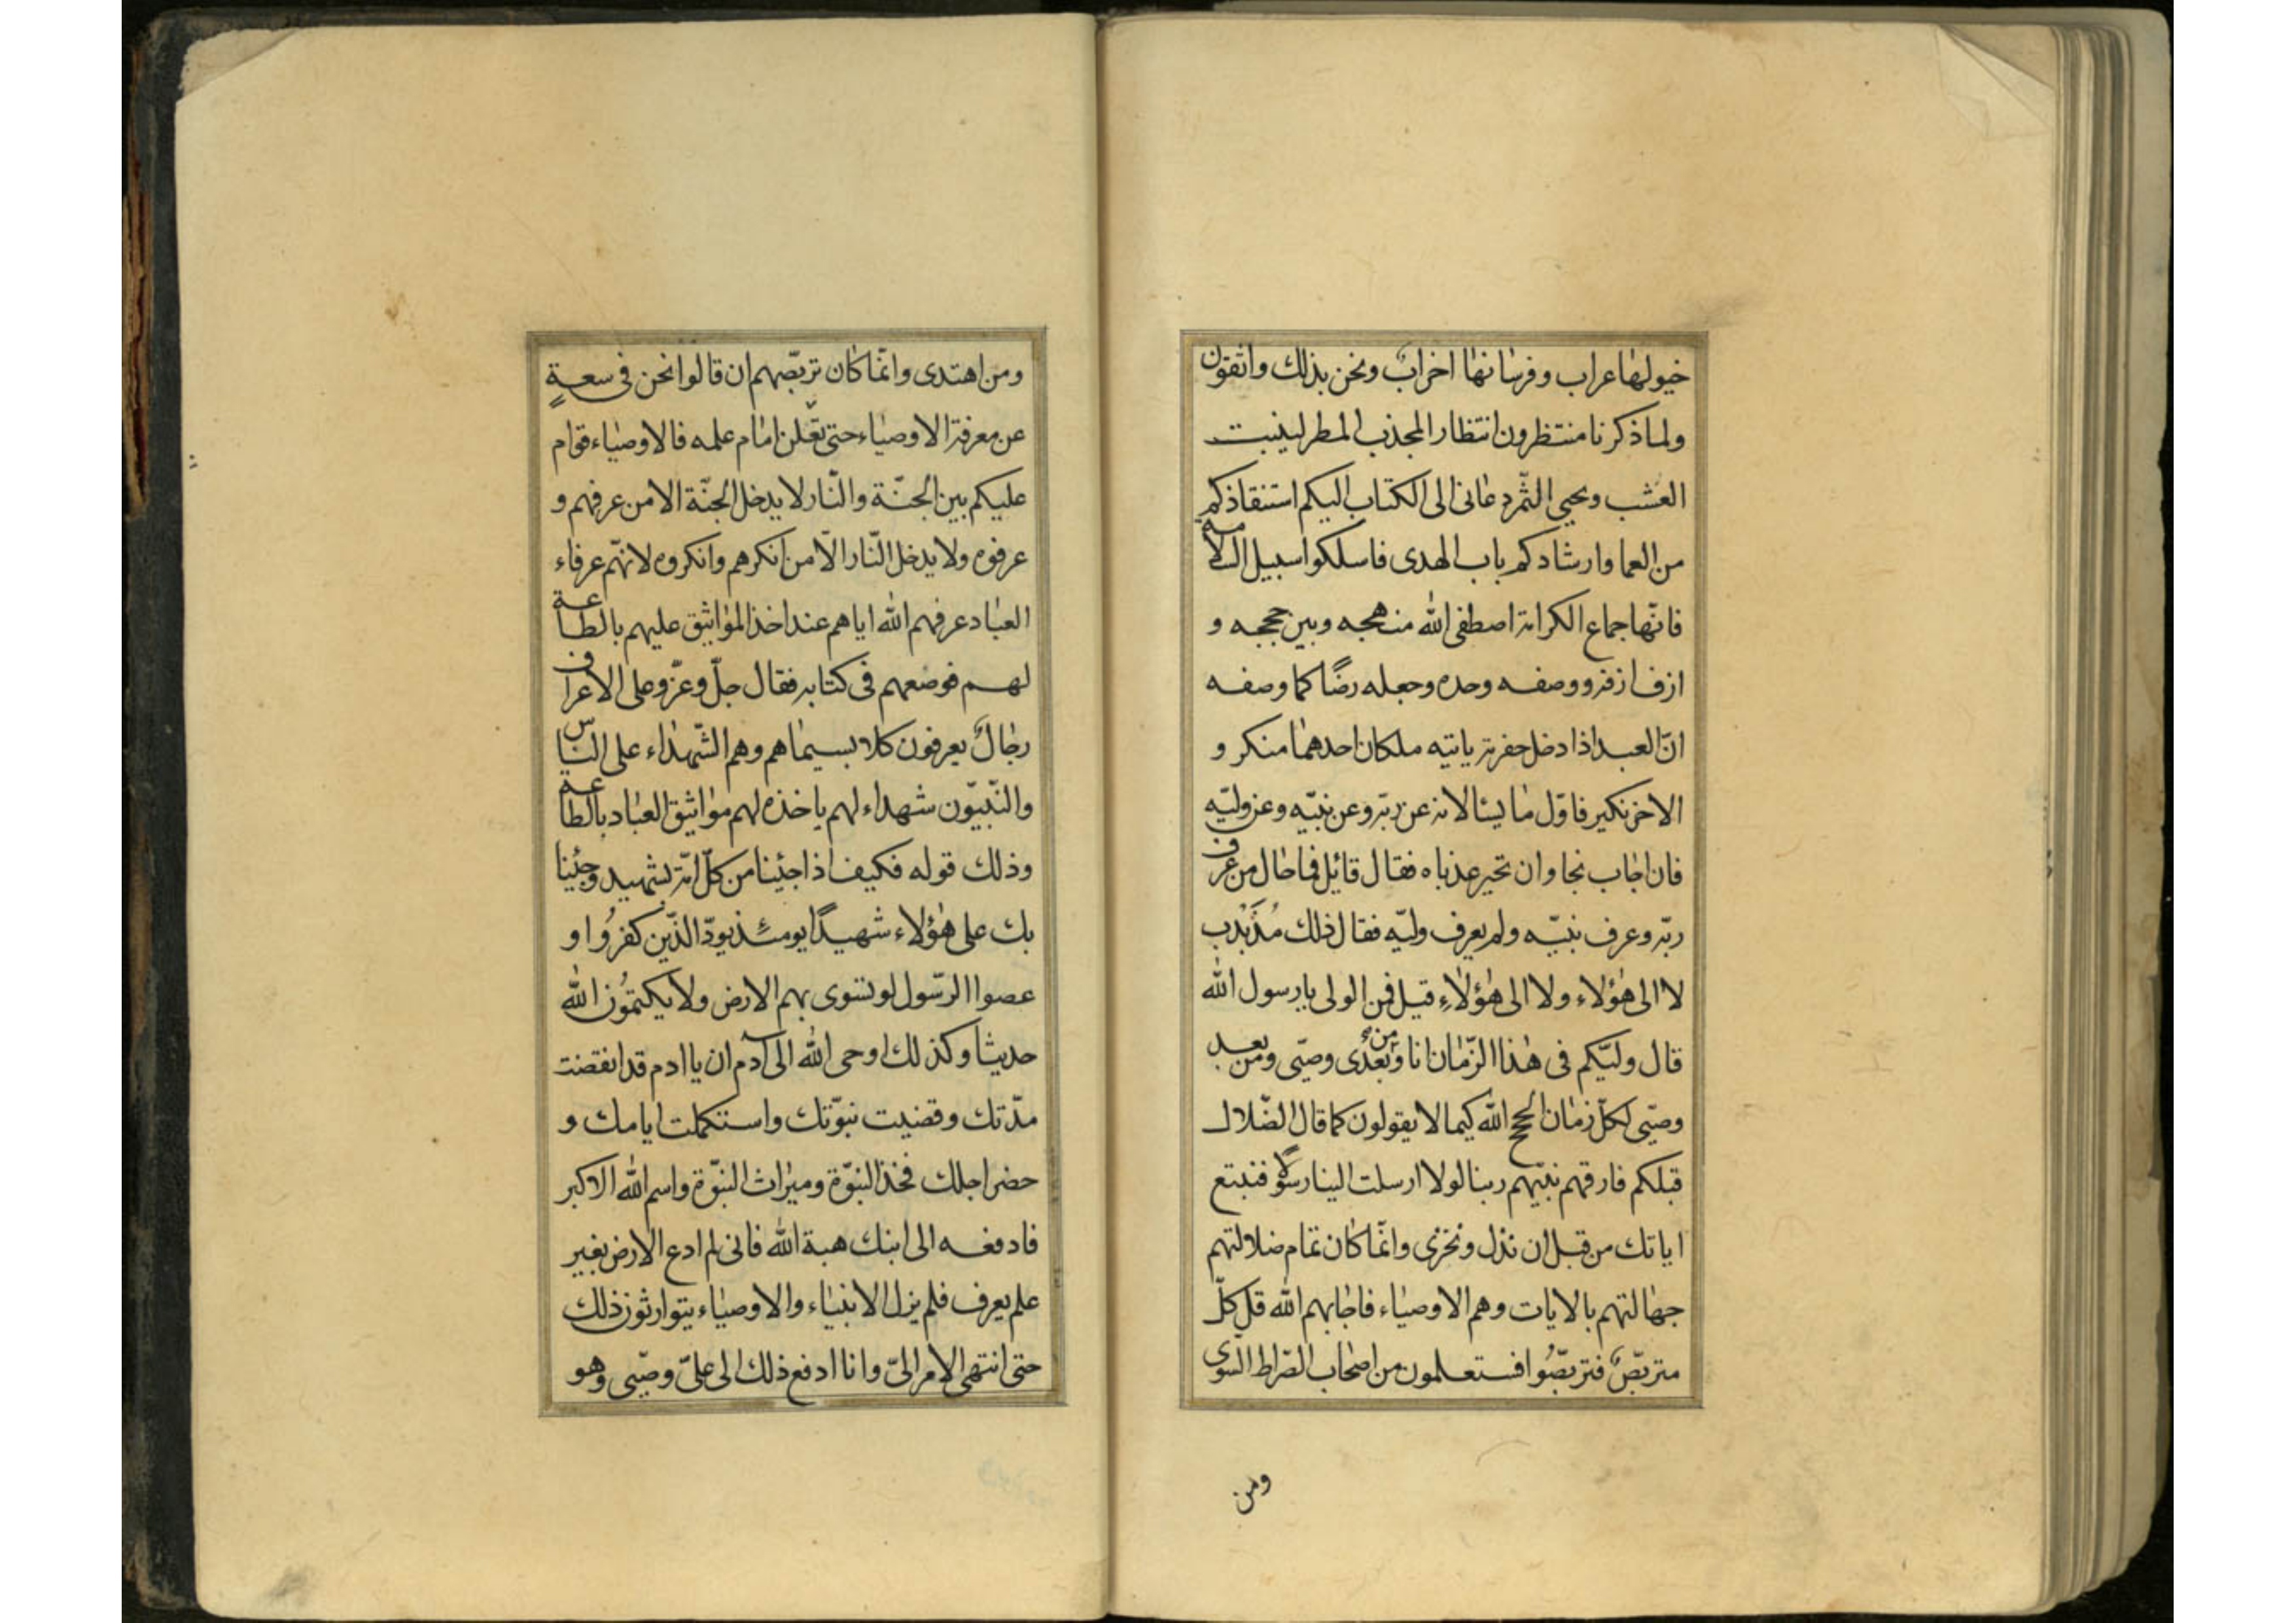 خيولها عراب وفرسانها احزاب ونحن بذلك واثقون
ولما ذكرنا منتظرون انتظار المجذب المطر لينبت
العشب ويحيى الثمر دعانى الى الكتاب اليكم استنقاذكم
من العما وارشادكم باب الهدى فاسلكوا سبيل السلامة
فانّها جماع الكرامة اصطفى الله منهجه وبين حججه و
ازف ازفه ووصفه وحده وجعله رضًا كما وصفه
انّ العبد اذا دخل حفرته ياتيه ملكان احدهما منكر و
الاخر نكير فاوّل ما يسئالانه عن ربّه وعن نبيّه وعن وليّه
فان اجاب نجا وان تحير عذباه فقال قائل فما حال من عرف
ربّه وعرف نبيّه ولم يعرف وليّه فقال ذلك مُذَبْذب
لا الى هٰؤلاء ولا الى هٰؤلاءِ قيل فمن الولى يا رسول الله
قال وليّكم فى هذا الزّمان انا ومن بعدى وصيّى ومن بعد
وصيّى لكلّ زمان حجج الله كيما لا يقولون كما قال الضّلال
قبلكم فارقهم نبيّهم ربنا لولا ارسلت الينا رسولًا فنتبع
اياتك من قبل ان نذل ونخزى وانّما كان تمام ضلالتهم
جهالتهم بالايات وهم الاوصياء فاجابهم الله قل كلّ
متربّصٌ فتربّصُوا فستعلمون من اصحاب الصّراط السّوى
ومن
ومن اهتدى وانّما كان تربّصهم ان قالوا نحن فى سعةٍ
عن معرفة الاوصياء حتى يعلن امام علمه فالاوصياء قوام
عليكم بين الجنّة والنّار لا يدخل الجنّة الا من عرفهم و
عرفوه ولا يدخل النّار الّا من انكرهم وانكروه لانّهم عرفاء
العباد عرفهم الله اياهم عند اخذ المواثيق عليهم بالطاعة
لهم فوضعهم فى كتابه فقال جلّ وعزّ وعلى الاعراف
رجالٌ يعرفون كلا بسيماهم وهم الشّهداء على النّاس
والنّبيّون شهداء لهم ياخذه لهم مواثيق العباد بالطاعة
وذلك قوله فكيف اذا جئنا من كلّ امّة بشهيد وجئنا
بك على هٰؤلاء شهيدًا يومئذ يودّ الذّين كفرُوا و
عصوا الرّسول لو تسوى بهم الارض ولا يكتمُون الله
حديثا وكذلك اوحى الله الى آدم ان يا ادم قد انقضت
مدّتك وقضيت نبوّتك واستكملت ايامك و
حضر اجلك فخذ النبوّة وميراث النبوّة واسم الله الاكبر
فادفعه الى ابنك هبة الله فانى لم ادع الارض بغير
علم يعرف فلم يزل الانبياء والاوصياء يتوارثون ذلك
حتى انتهى الامر الىّ وانا ادفع ذلك الى علىّ وصيّى وهو